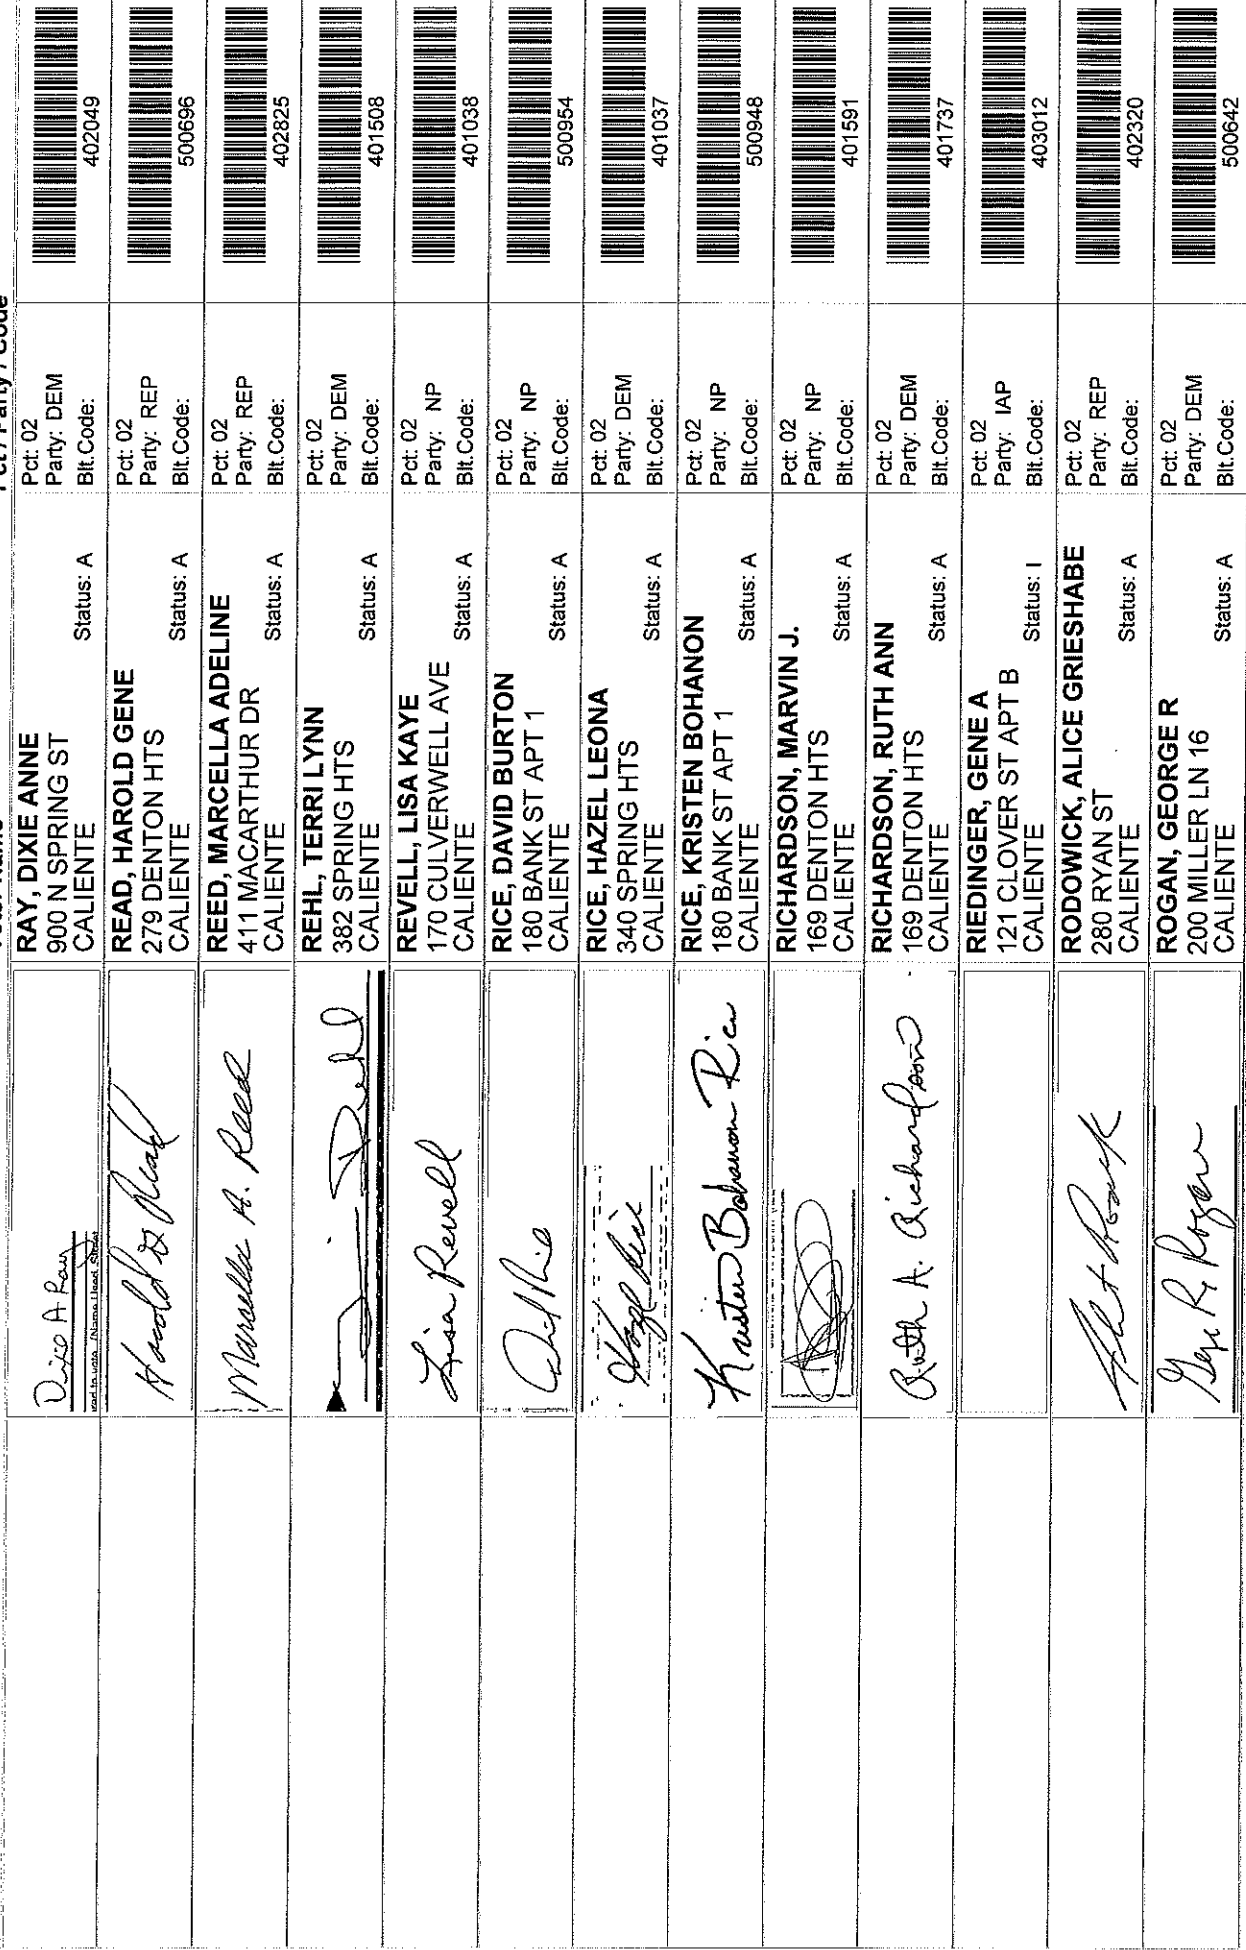 RAY, DIXIE ANNE
900 N SPRING ST
CALIENTE Status: A
Pct: 02
Party: DEM
Blt.Code:
402049
Dixie A Ray
READ, HAROLD GENE
279 DENTON HTS
CALIENTE Status: A
Pct: 02
Party: REP
Blt.Code:
500696
Harold G Read
REED, MARCELLA ADELINE
411 MACARTHUR DR
CALIENTE Status: A
Pct: 02
Party: REP
Blt.Code:
402825
Marcella A. Reed
REHL, TERRI LYNN
382 SPRING HTS
CALIENTE Status: A
Pct: 02
Party: DEM
Blt.Code:
401508
REVELL, LISA KAYE
170 CULVERWELL AVE
CALIENTE Status: A
Pct: 02
Party: NP
Blt.Code:
401038
Lisa Revell
RICE, DAVID BURTON
180 BANK ST APT 1
CALIENTE Status: A
Pct: 02
Party: NP
Blt.Code:
500954
RICE, HAZEL LEONA
340 SPRING HTS
CALIENTE Status: A
Pct: 02
Party: DEM
Blt.Code:
401037
Hazel Rice
RICE, KRISTEN BOHANON
180 BANK ST APT 1
CALIENTE Status: A
Pct: 02
Party: NP
Blt.Code:
500948
Kristen Bohanon Rice
RICHARDSON, MARVIN J.
169 DENTON HTS
CALIENTE Status: A
Pct: 02
Party: NP
Blt.Code:
401591
RICHARDSON, RUTH ANN
169 DENTON HTS
CALIENTE Status: A
Pct: 02
Party: DEM
Blt.Code:
401737
Ruth A. Richardson
RIEDINGER, GENE A
121 CLOVER ST APT B
CALIENTE Status: I
Pct: 02
Party: IAP
Blt.Code:
403012
RODOWICK, ALICE GRIESHABE
280 RYAN ST
CALIENTE Status: A
Pct: 02
Party: REP
Blt.Code:
402320
ROGAN, GEORGE R
200 MILLER LN 16
CALIENTE Status: A
Pct: 02
Party: DEM
Blt.Code:
500642